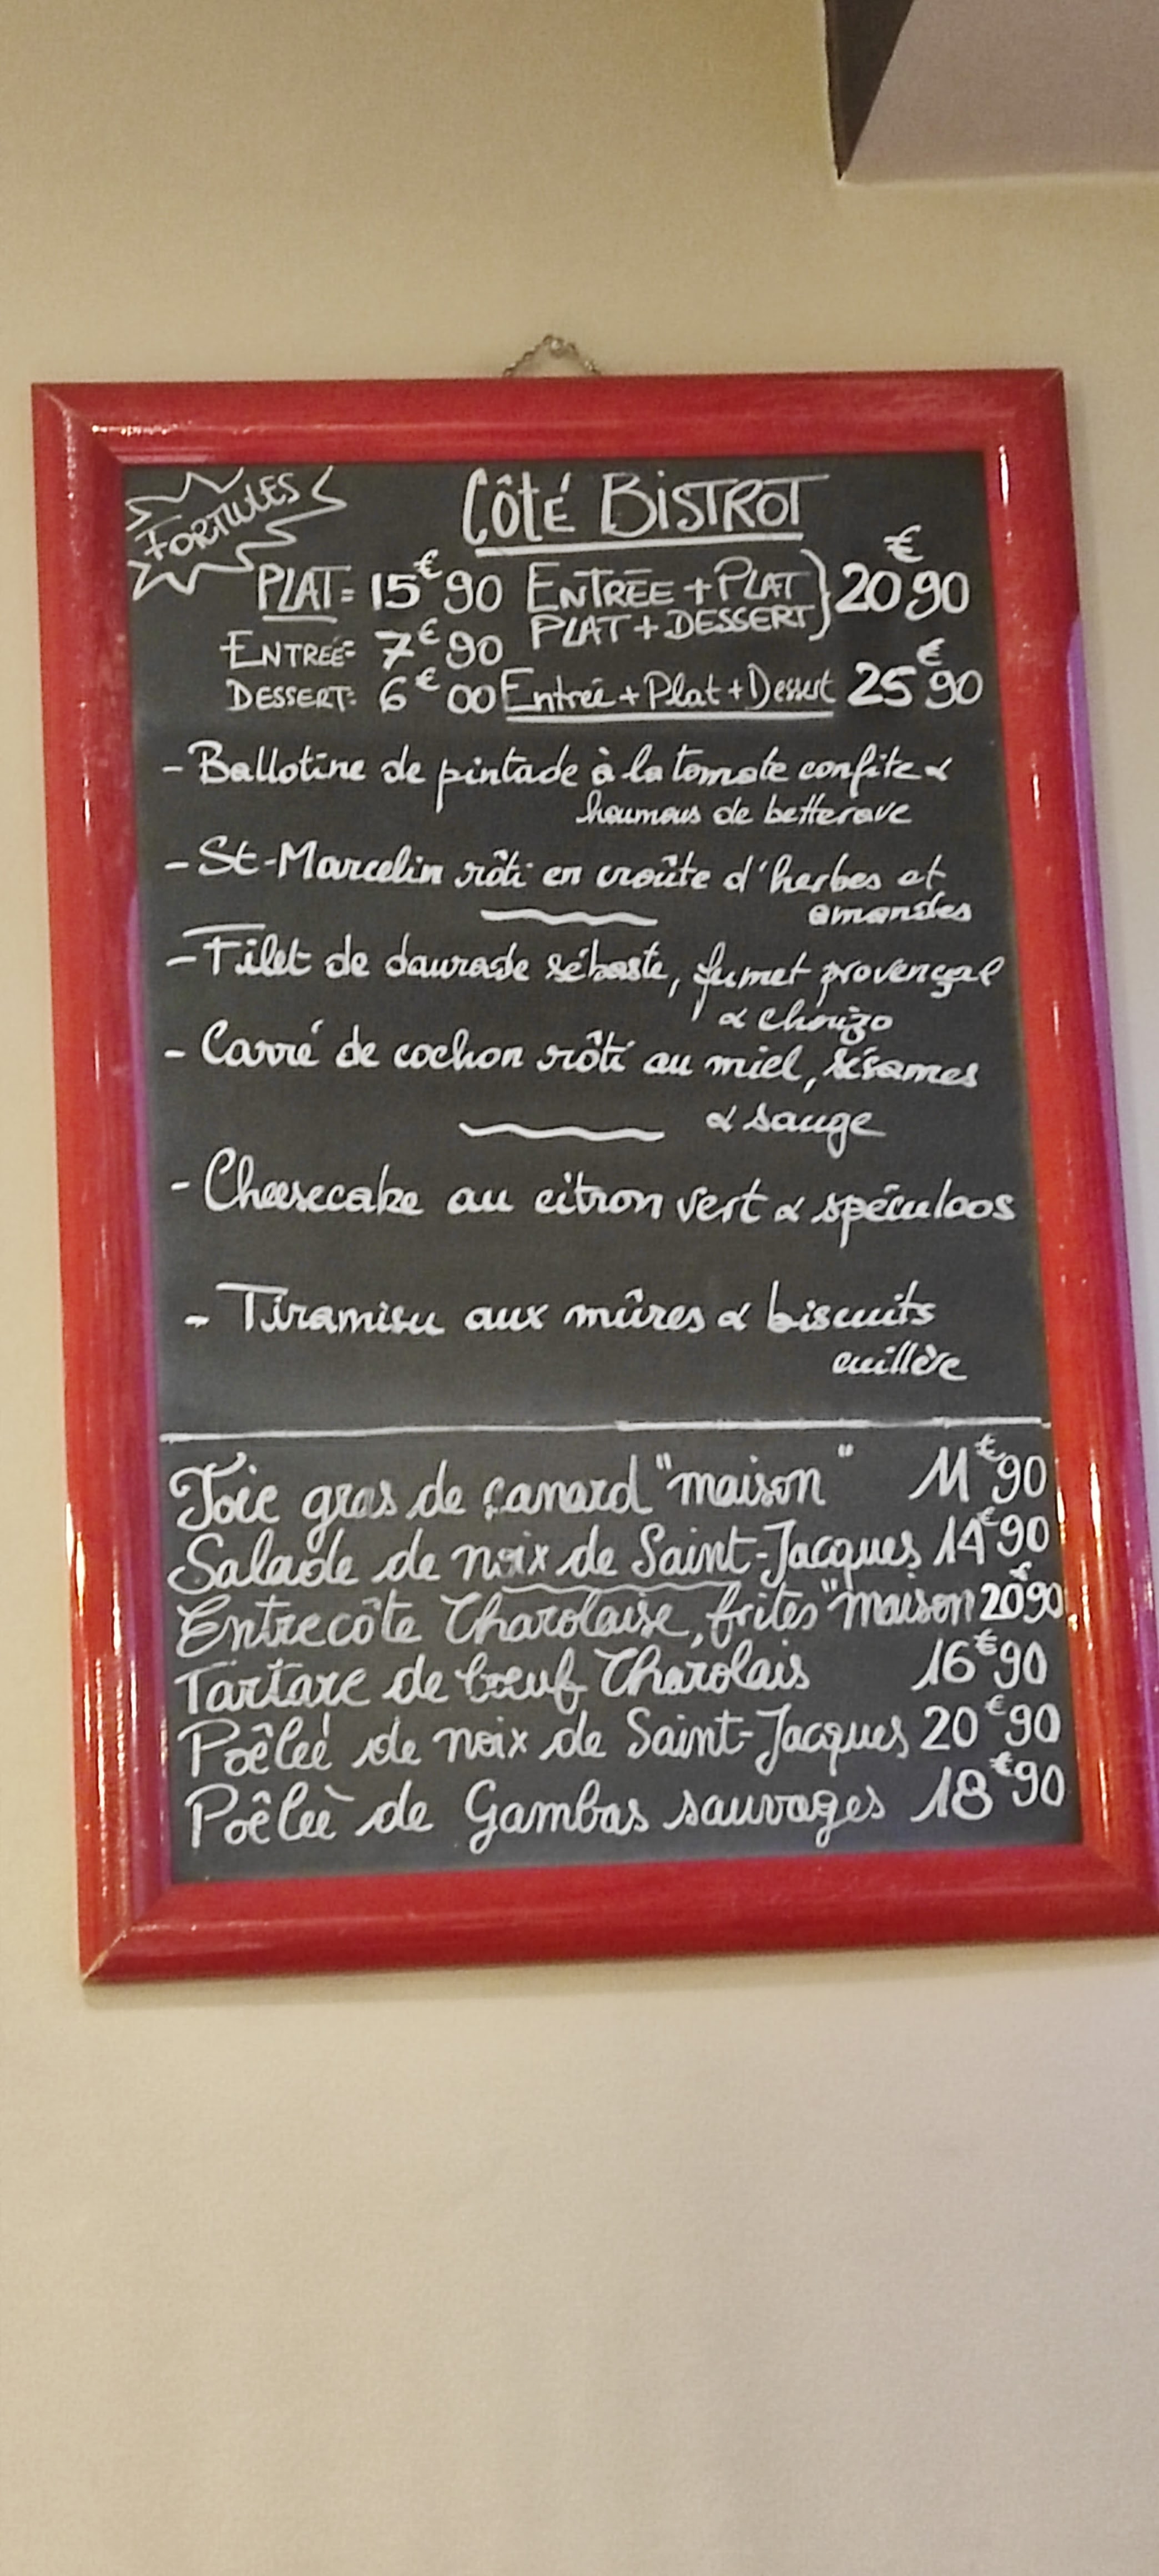 FORMULES
CÔTÉ BISTROT
PLAT = 15€90 ENTRÉE + PLAT } 20€90
PLAT + DESSERT
ENTREÉ = 7€90
DESSERT: 6€00 Entreé + Plat + Dessert 25€90
- Ballotine de pintade à la tomate confite &
houmous de betterave
- St-Marcelin rôti en croûte d'herbes et
amandes
- Filet de daurade sébaste, fumet provençal
& chorizo
- Carré de cochon rôti au miel, sésames
& sauge
- Cheesecake au citron vert & spéculoos
- Tiramisu aux mûres & biscuits
cuillère
Foie gras de canard "maison" 11€90
Salade de noix de Saint-Jacques 14€90
Entrecôte Charolaise, frites "maison 20€90
Tartare de bœuf Charolais 16€90
Poêleé de noix de Saint-Jacques 20€90
Poêleè de Gambas sauvages 18€90